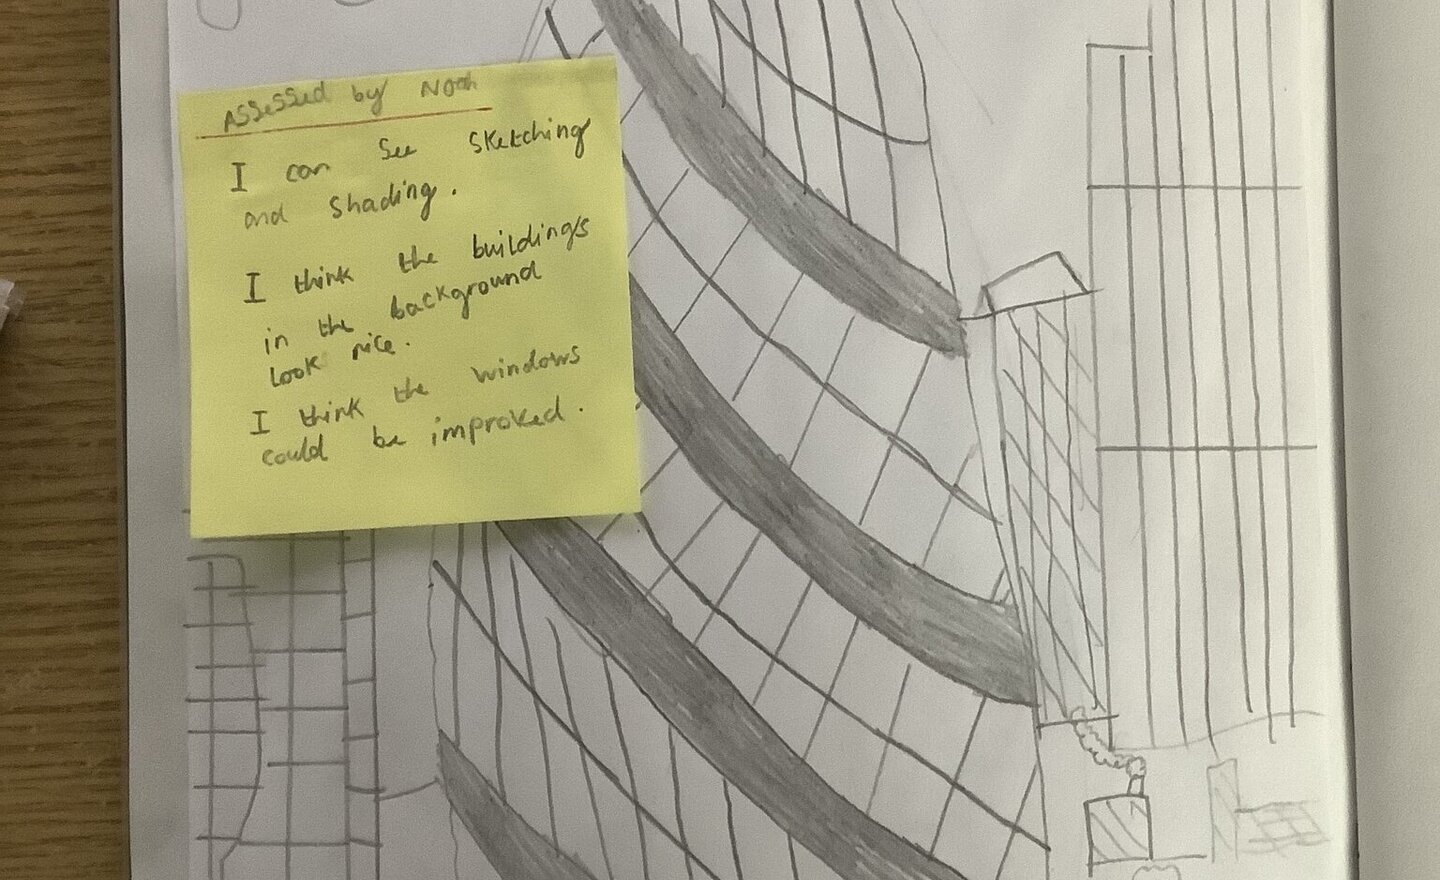 Assessed by Noah
I can see sketching
and shading.
I think the buildings
in the background
look nice.
I think the windows
could be improked.